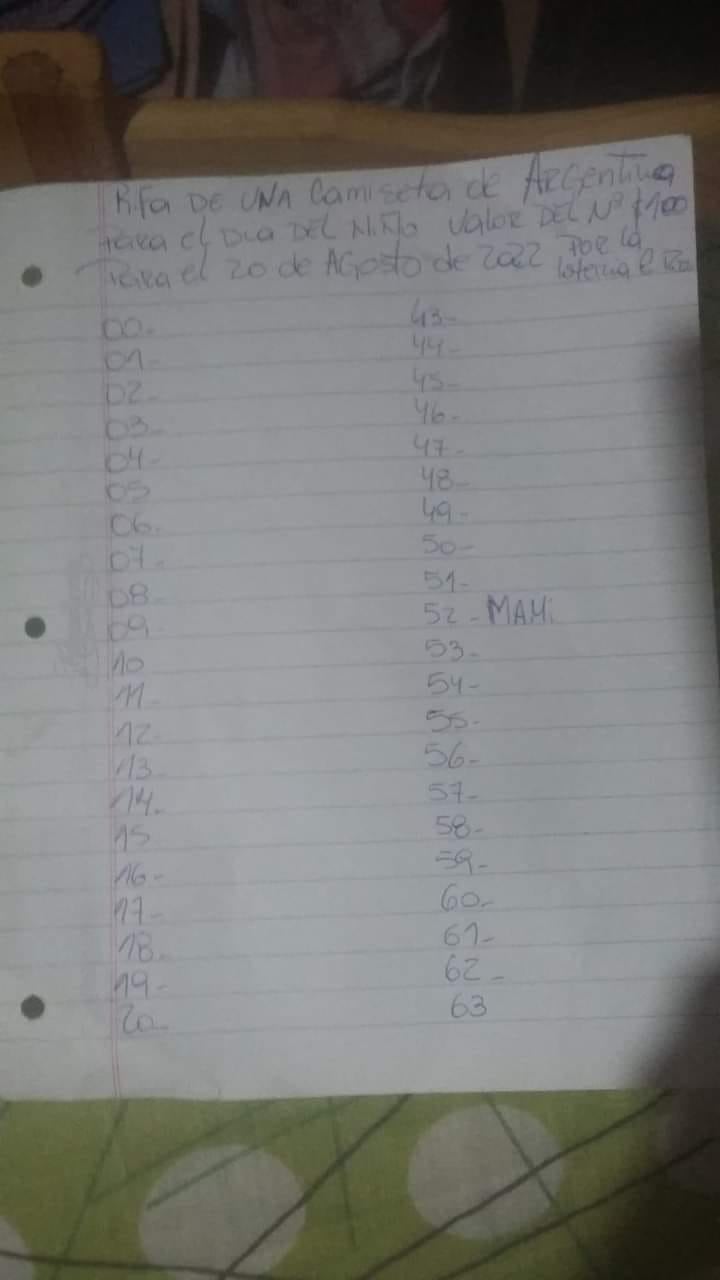 Rifa DE UNA Camiseta de Argentina
Para el Dia DEL NIÑo Valor DEL Nº $100
Para el 20 de Agosto de 2022 Por la
loteria
00-
01-
02-
03-
04-
05
06-
07-
08-
09-
10
11-
12-
13-
14-
15
16-
17-
18-
19-
20-
43-
44-
45-
46-
47-
48-
49-
50-
51-
52- MAMi
53-
54-
55-
56-
57-
58-
59-
60-
61-
62-
63